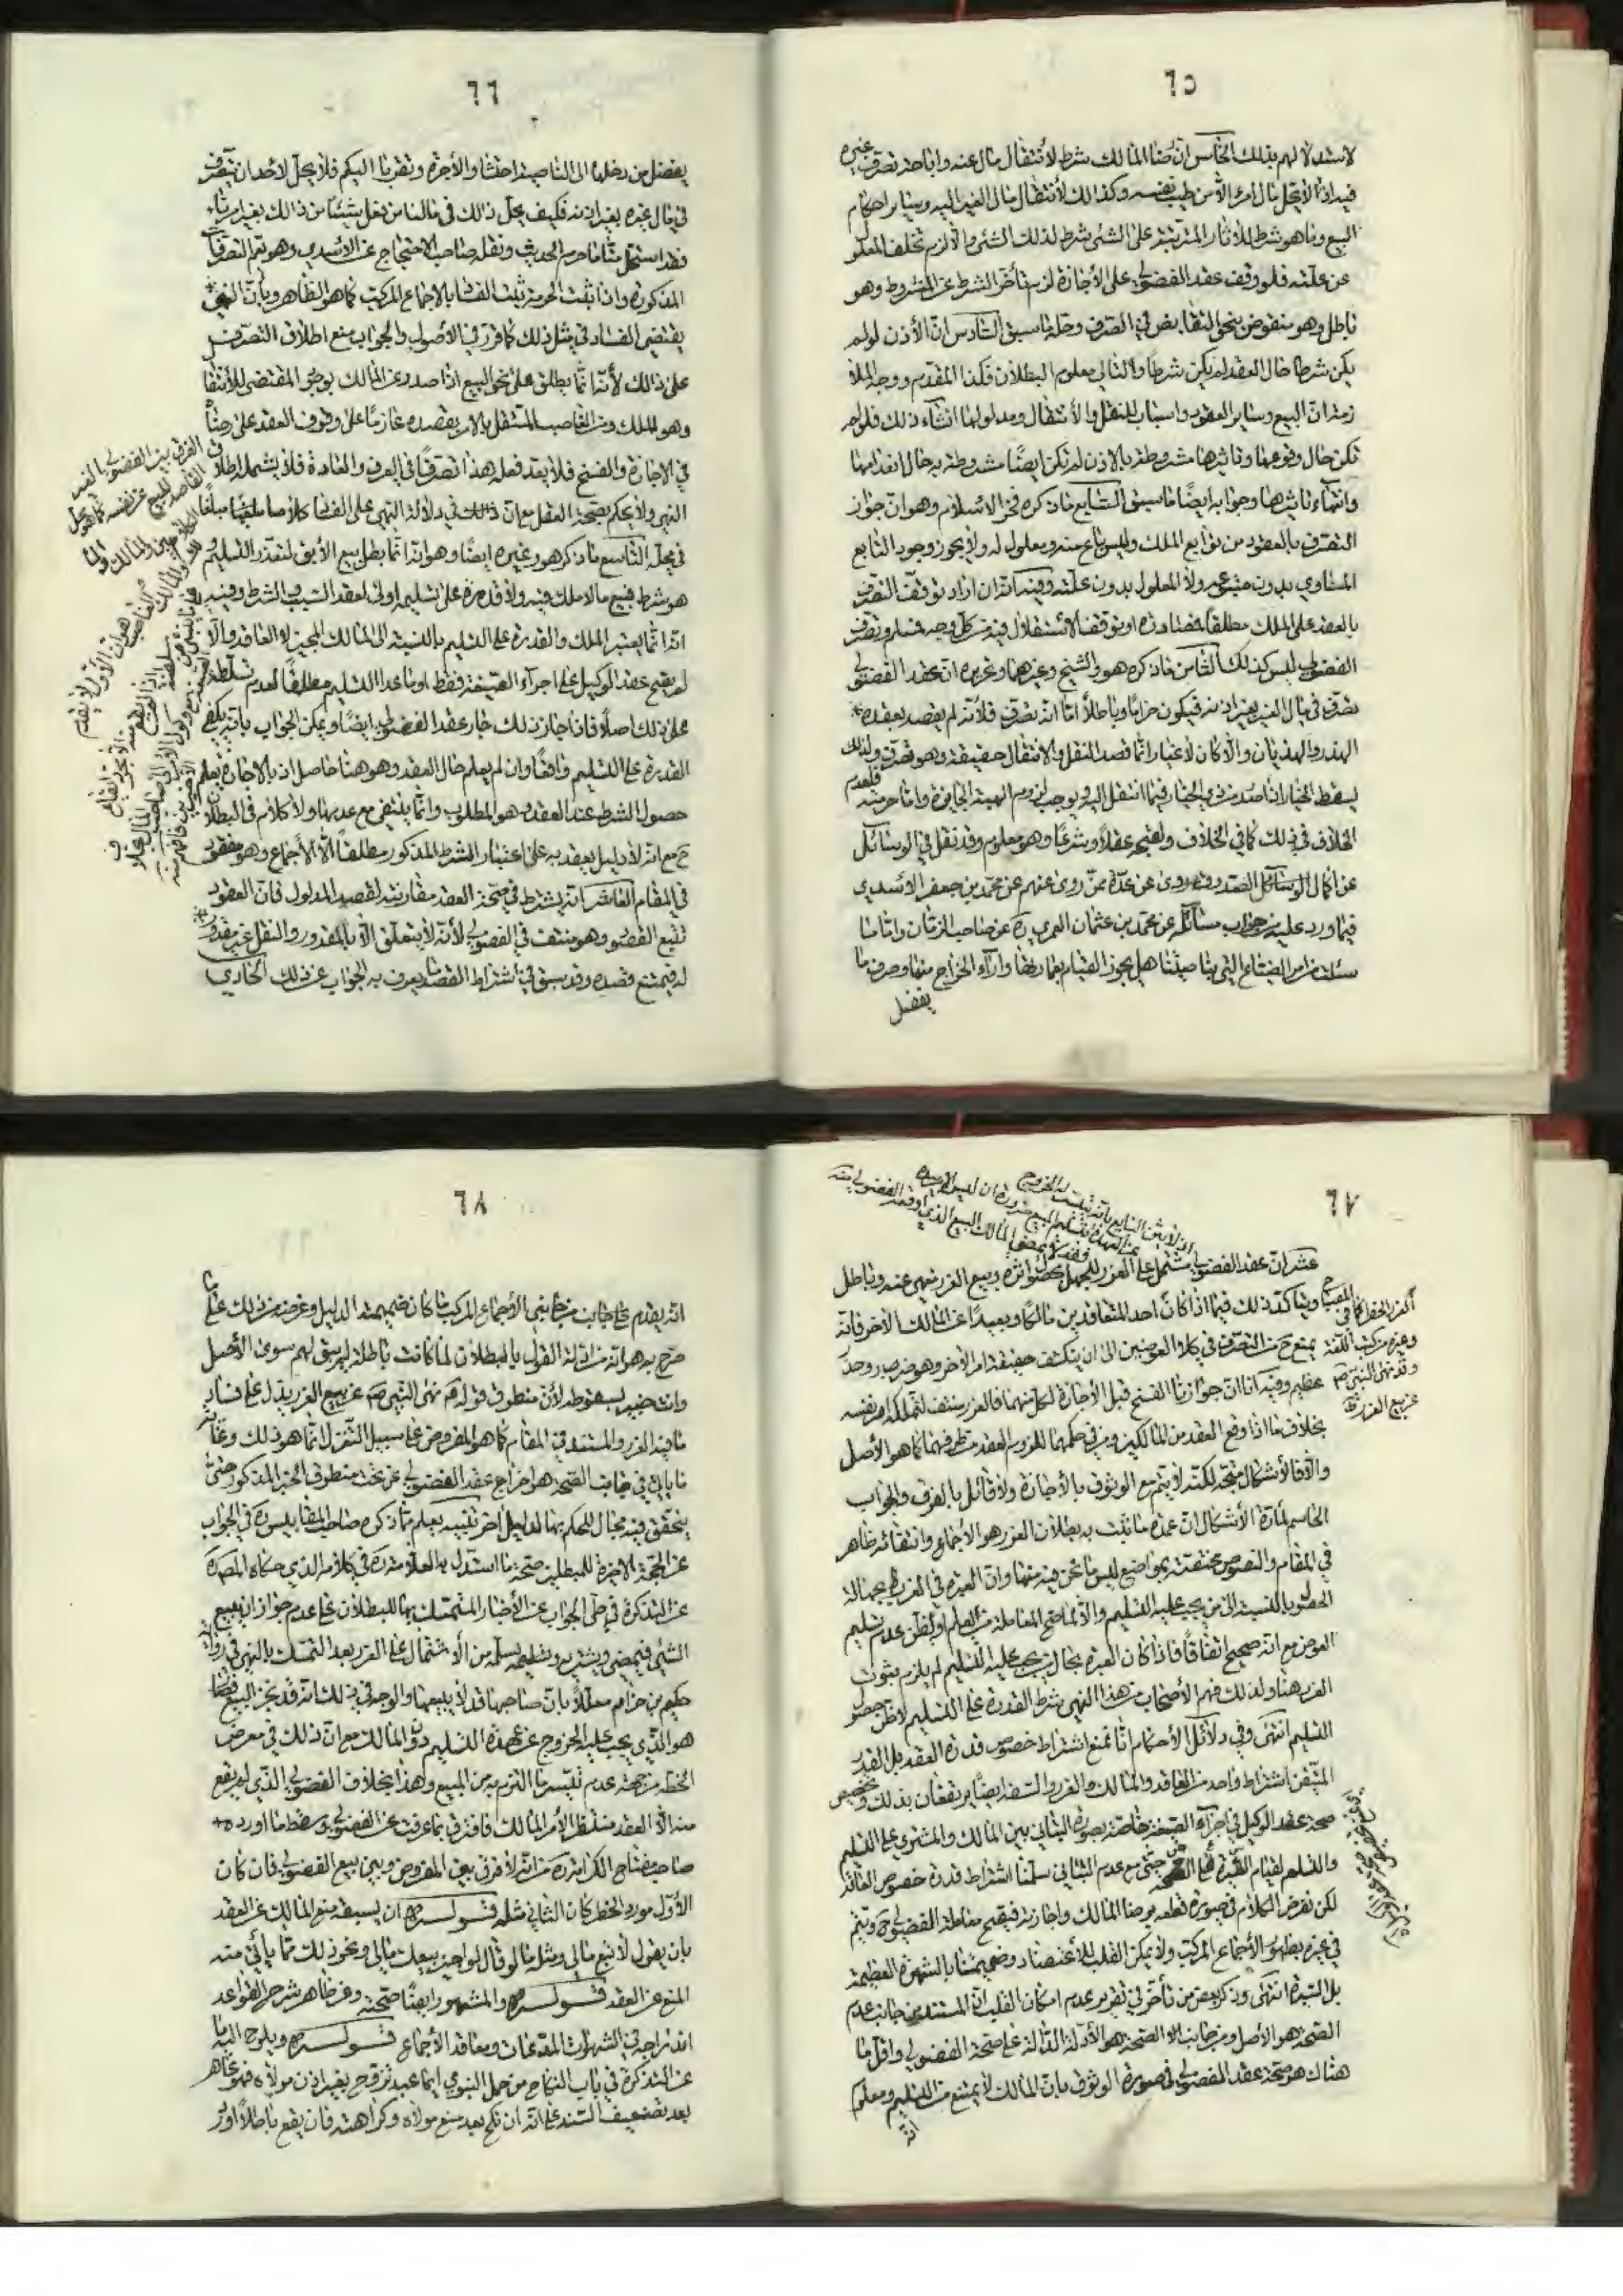 ٦٥
لاستدلالهم بذلك الخامس ان رضا المالك شرط لانتقال مال عنه واباحة تصرف غيره
فيه اذ لا يحل مال امرئ الا من طيب نفسه وكذلك لانتقال مال الغير اليه وسائر احكام
البيع وما هو شرط للاثار المترتبة على الشئ شرط لذلك الشئ والا لزم تخلف المعلول
عن علته فلو وقف عقد الفضولي على الاجازة لزم تأخر الشرط عن المشروط وهو
باطل وهو منقوض بنحو التقابض في الصرف وحله ما سبق السادس ان الاذن لو لم
يكن شرطا حال العقد لم يكن شرطا والتالي معلوم البطلان فكذا المقدم ووجه الملا
زمة ان البيع وسائر العقود واسباب للنقل والانتقال ومدلولها انشاء ذلك فلو لم
تكن حال وقوعها وتاثيرها مشروطة بالاذن لم تكن ايضا مشروطة به حال انعدامها
وانتهاء تاثيرها وجوابه ايضا ما سبق السابع ما ذكره فخر الاسلام وهو ان جواز
التصرف بالعقود من توابع الملك وليس تابع عنه ومعلول له ولا يجوز وجود التابع
المساوي بدون متبوعه ولا المعلول بدون علته وفيه انه ان اراد توقف التصرف
بالعقد على الملك مطلقا فمصادرة او توقف الاستقلال فيه من كل وجه فمسلم وتصرف
الفضولي ليس كذلك الثامن ما ذكره هو والشيخ وغيرهما وتحريره ان عقد الفضولي
تصرف في مال الغير بغير اذنه فيكون حراما وباطلا اما انه تصرف فلانه لم يقصد بعقده
الهذر والهذيان والا كان لا عبارة انما قصد النقل والانتقال حقيقة وهو تصرف ولذلك
يسقط الخيار اذا صدر من ذي الخيار فيما انتقل اليه ويوجب لزوم الهبة الجايزة واما حرمته فلعدم
الخلاف في ذلك كما في الخلاف ولقبحه عقلا وشرعا وهو معلوم وقد نقل في الوسائل
عن اكمال الصدوق روى عن عدة ممن روى عنهم عن محمد بن جعفر الاسدي
فيما ورد عليه من جواب مسائله عن محمد بن عثمان العمري ره عن صاحب الزمان واما ما
سئلت من امر الضياع التي بناحيتنا هل يجوز القيام بعمارتها واداء الخراج منها وصرف ما
يفضل
٦٦
يفضل من دخلها الى الناحية احتسابا والاجرة وتقربا اليكم فلا يحل لاحد ان يتصرف
في مال غيره بغير اذنه فكيف يحل ذلك في مالنا من فعل شيئا من ذلك بغير امرنا
فقد استحل منا ما حرم الحديث ونقله صاحب الاحتجاج عن الاسدي وهو تعم التصرفات
المذكورة واذا ثبت الحرمة ثبت الفساد بالاجماع المركب كما هو الظاهر وبأن النهي
يقتضي الفساد في مثل ذلك كما قرر في الاصول والجواب منع اطلاق التصرف
على ذلك لأنه انما يطلق على نحو البيع اذا صدر عن المالك بوجه المقتضي للانتقال
وهو للملك ومن الغاصب المستقل بالامر بقصده عازما على وقوف العقد على رضاه
في الاجازة والفسخ فلا يعد فعله هذا تصرفا في العرف والعادة فلا يشمله اطلاق
النهي ولا يحكم بقبحه العقل مع ان في دلالة النهي على الفساد كلاما
في محله التاسع ما ذكره هو وغيره ايضا وهو انه انما بطل بيع الآبق لتعذر التسليم
هو شرط فبيع ما لا ملك فيه ولا قدرة على تسليمه اولى لفقد السبب والشرط وفيه
انه انما يعتبر الملك والقدرة على التسليم بالنسبة الى المالك المجيز لا العاقد والا
لم يصح عقد الوكيل على اجراء الصيغة فقط او ما عدا التسليم مطلقا لعدم تسلطه
على ذلك اصلا فاذا جاز ذلك جاز عقد الفضولي ايضا ويمكن الجواب بانه يكفي
القدرة على التسليم واقعا وان لم يعلم حال العقد وهو هنا حاصل اذ بالاجازة يعلم
حصول الشرط عند العقد وهو المطلوب وانما ينتفي مع عدمها ولا كلام في البطلان
ح مع انه لا دليل يعتد به على اعتبار الشرط المذكور مطلقا الا الاجماع وهو مفقود
في المقام العاشر انه يشترط في صحة العقد مقارنته لقصد المدلول فان العقود
تتبع القصود وهو منتف في الفضولي لأنه لا يتعلق الا بالمقدور والنقل غير مقدور
له فيمتنع قصده وقد سبق في اشتراط القصد ما يعرف به الجواب عن ذلك الحادي
٦٧
عشر ان عقد الفضولي مشتمل على الغرر للجهل بحصول اثره وبيع الغرر منهي عنه وباطل
ويتاكد ذلك فيما اذا كان احد المتعاقدين مالكا وبعيدا عن المالك الآخر فانه
يمتنع ح من التصرف في كلا العوضين الى ان ينكشف حقيقة امر الآخر وهو ضرر وحرج
عظيم وفيه انا ان جوزنا الفسخ قبل الاجازة لكل منهما فالغرر منتف لتملكه امر نفسه
بخلاف ما اذا وقع العقد من المالكين ومن في حكمهما للزوم العقد من طرفهما كما هو الأصل
والا فالاشكال متجه لكنه لا يتم مع الوثوق بالاجازة ولا قائل بالفرق والجواب
الحاسم لمادة الاشكال ان عمدة ما ثبت به بطلان الغرر هو الاجماع وانتفائه ظاهر
في المقام والنصوص مختصة بمواضع ليس ما نحن فيه منها وان العبرة في الغرر بجهالة
الحصول بالنسبة الى من يجب عليه التسليم والا لما صح المعاملة مع العلم او الظن بعدم تسليم
العوض مع انه صحيح اتفاقا فاذا كان العبرة بحال من يجب عليه التسليم لم يلزم ثبوت
الغرر هنا ولذلك فهم الأصحاب من هذا النهي شرط القدرة على التسليم لا ظن حصول
التسليم انتهى وفي دلائل الاحكام انا نمنع اشتراط خصوص قدرة العقد بل القدر
المتيقن اشتراط واحد من العاقد والمالك والغرر والسفه ايضا يرتفعان بذلك وتخصيص
صحة عقد الوكيل في اجراء الصيغة خاصة بصورة التباني بين المالك والمشتري على التسليم
والتسلم لقيام السيرة على الصحة حتى مع عدم التباني سلمنا اشتراط قدرة خصوص العاقد
لكن نفرض الكلام في صورة قطعه برضا المالك واجازته فيصح معاملة الفضولي ح ويتم
في غيره بظهور الاجماع المركب ولا يمكن القلب للاعتضاد وضميمتنا بالشهرة العظيمة
بل السيرة انتهى وذكر بعض من تأخر في تقرير عدم امكان القلب ان المستند من جانب عدم
الصحة هو الأصل ومن جانب الصحة هو الأدلة الدالة على صحة الفضولي واقل ما
هناك هو صحة عقد الفضولي في صورة الوثوق بان المالك لا يمتنع من التسليم ومعلوم
انه
الغرر الخطر كما في المصباح
وغيره من كتب اللغة
وقد نهى النبي ص
عن بيع الغرر
٦٨
انه يقدم على جانب من جانبي الاجماع المركب ما كان ضميمته الدليل وغرضه من ذلك على ما
صرح به هو انه من ان ادلة القول بالبطلان لما كانت باطلة لم يبق لهم سوى الأصل
وانت خبير بسقوطه لأن منطوق قوله نهى النبي ص عن بيع الغرر يدل على فساد
ما فيه الغرر والمستند في المقام كما هو المفروض على سبيل التنزل انما هو ذلك وغاية
ما يأتي في جانب الصحة هو اخراج عقد الفضولي عن تحت منطوق الخبر المذكور حتى
يتحقق فيه مجال للحكم بها لدليل آخر تنبيه يعلم مما ذكره صاحب المقابيس ره في الجواب
عن الحجة الاخيرة للمبطلين صحة ما استدل به العلامة ره في كلامه الذي حكاه المص ره
عن التذكرة في حلى الجواب عن الأخبار المتمسك بها للبطلان على عدم جواز ان يبيع
الشئ فيمضي ويشتريه ويسلمه من الاشتمال على الغرر بعد التمسك بالنهي في رواية
حكيم بن حزام معللا بان صاحبها قد لا يبيعها والوجه في ذلك انه قد نجز البيع فصار
هو الذي يجب عليه الخروج عن عهدة التسليم دون المالك مع ان ذلك في معرض
الخطر من جهة عدم تيسر ما التزم به من المبيع وهذا بخلاف الفضولي الذي لم يقع
منه الا العقد منتظرا لأمر المالك فافترق بما عرفت عن الفضولي وسقط ما اورده
صاحب مفتاح الكرامة ره من انه لا فرق بين المفروض وبين بيع الفضولي فان كان
الأول مورد الخطر كان الثاني مثله قوله ان يسبقه منع المالك عن العقد
بان يقول لا تبع مالي ومثله ما لو قال لو اجيز بيعك مالي ونحو ذلك مما يأتي منه
المنع عن العقد قوله والمشهور ايضا صحته وعن ظاهر شرح القواعد
اندراجه في الشهرات المدعاة ومعاقد الاجماع قوله ويلوح اليه ما
عن التذكرة في باب النكاح من حمل النبوي ايما عبد تزوج بغير اذن مولاه فهو عاهر
بعد تضعيف السند على انه ان نكح بعد منع مولاه وكراهته فان يقع باطلا